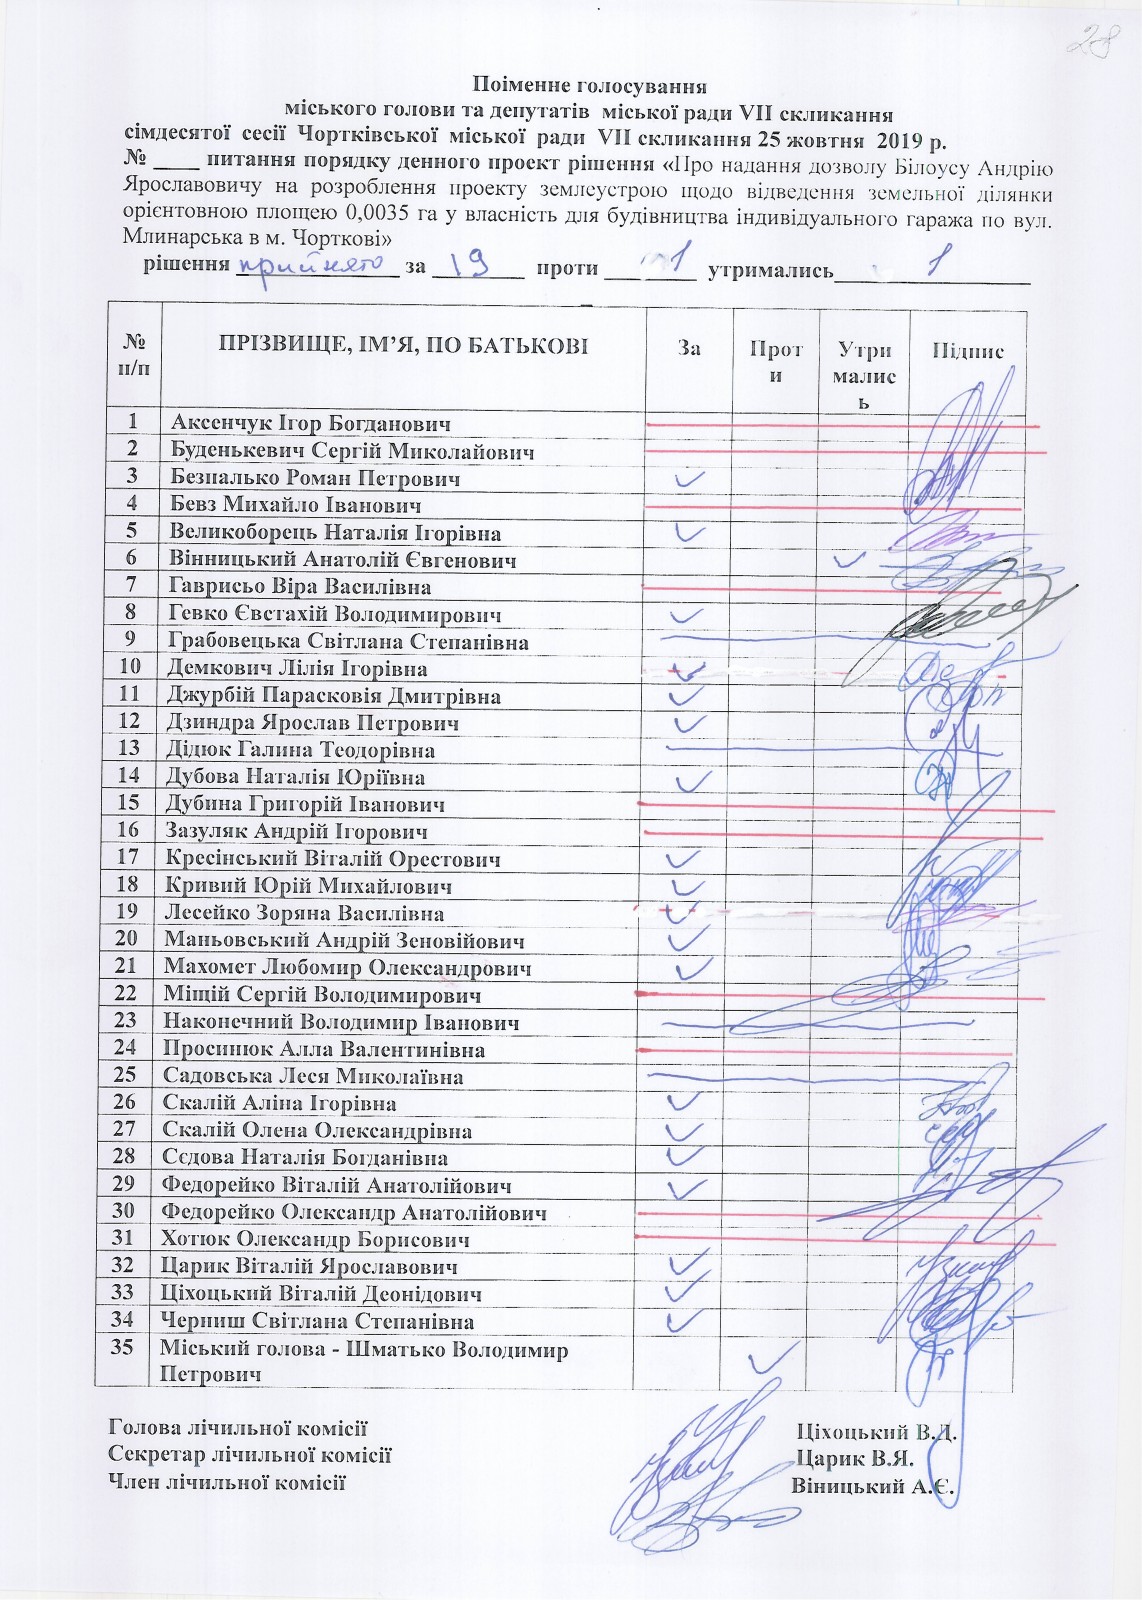 28
Поіменне голосування
міського голови та депутатів міської ради VII скликання
сімдесятої сесії Чортківської міської ради VII скликання 25 жовтня 2019 р.
№ ____ питання порядку денного проект рішення «Про надання дозволу Білоусу Андрію
Ярославовичу на розроблення проекту землеустрою щодо відведення земельної ділянки
орієнтовною площею 0,0035 га у власність для будівництва індивідуального гаража по вул.
Млинарська в м. Чорткові»
рішення прийнято за 19 проти 1 утримались 1
№ п/п ПРІЗВИЩЕ, ІМ’Я, ПО БАТЬКОВІ За Проти Утримались Підпис
1 Аксенчук Ігор Богданович
2 Буденькевич Сергій Миколайович
3 Безпалько Роман Петрович ✓
4 Бевз Михайло Іванович
5 Великоборець Наталія Ігорівна ✓
6 Вінницький Анатолій Євгенович ✓
7 Гаврисьо Віра Василівна
8 Гевко Євстахій Володимирович ✓
9 Грабовецька Світлана Степанівна
10 Демкович Лілія Ігорівна ✓
11 Джурбій Парасковія Дмитрівна ✓
12 Дзиндра Ярослав Петрович ✓
13 Дідюк Галина Теодорівна
14 Дубова Наталія Юріївна ✓
15 Дубина Григорій Іванович
16 Зазуляк Андрій Ігорович
17 Кресінський Віталій Орестович ✓
18 Кривий Юрій Михайлович ✓
19 Лесейко Зоряна Василівна ✓
20 Маньовський Андрій Зеновійович ✓
21 Махомет Любомир Олександрович ✓
22 Міщій Сергій Володимирович
23 Наконечний Володимир Іванович
24 Просинюк Алла Валентинівна
25 Садовська Леся Миколаївна
26 Скалій Аліна Ігорівна ✓
27 Скалій Олена Олександрівна ✓
28 Сєдова Наталія Богданівна ✓
29 Федорейко Віталій Анатолійович ✓
30 Федорейко Олександр Анатолійович
31 Хотюк Олександр Борисович
32 Царик Віталій Ярославович ✓
33 Ціхоцький Віталій Деонідович ✓
34 Черниш Світлана Степанівна ✓
35 Міський голова - Шматько Володимир ✓
Петрович
Голова лічильної комісії Ціхоцький В.Д.
Секретар лічильної комісії Царик В.Я.
Член лічильної комісії Віницький А.Є.